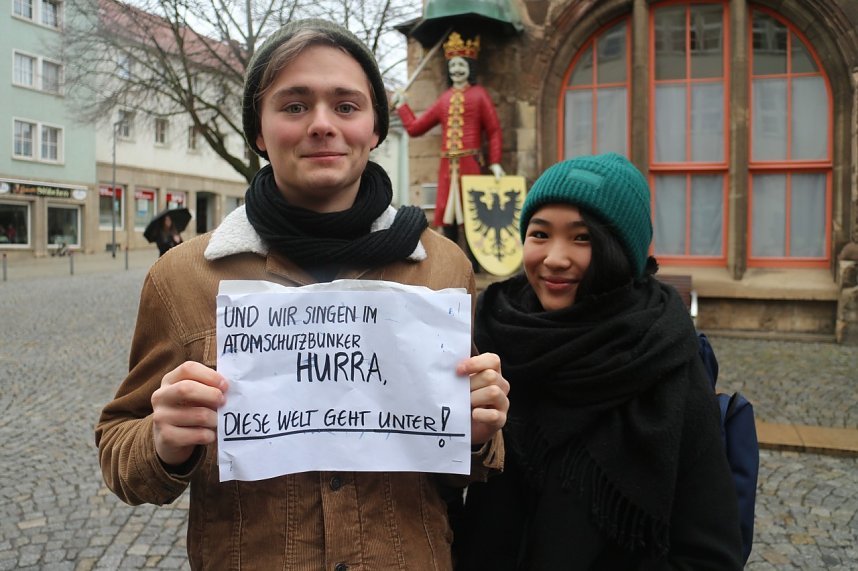 UND WIR SINGEN IM
ATOMSCHUTZBUNKER
HURRA,
DIESE WELT GEHT UNTER!